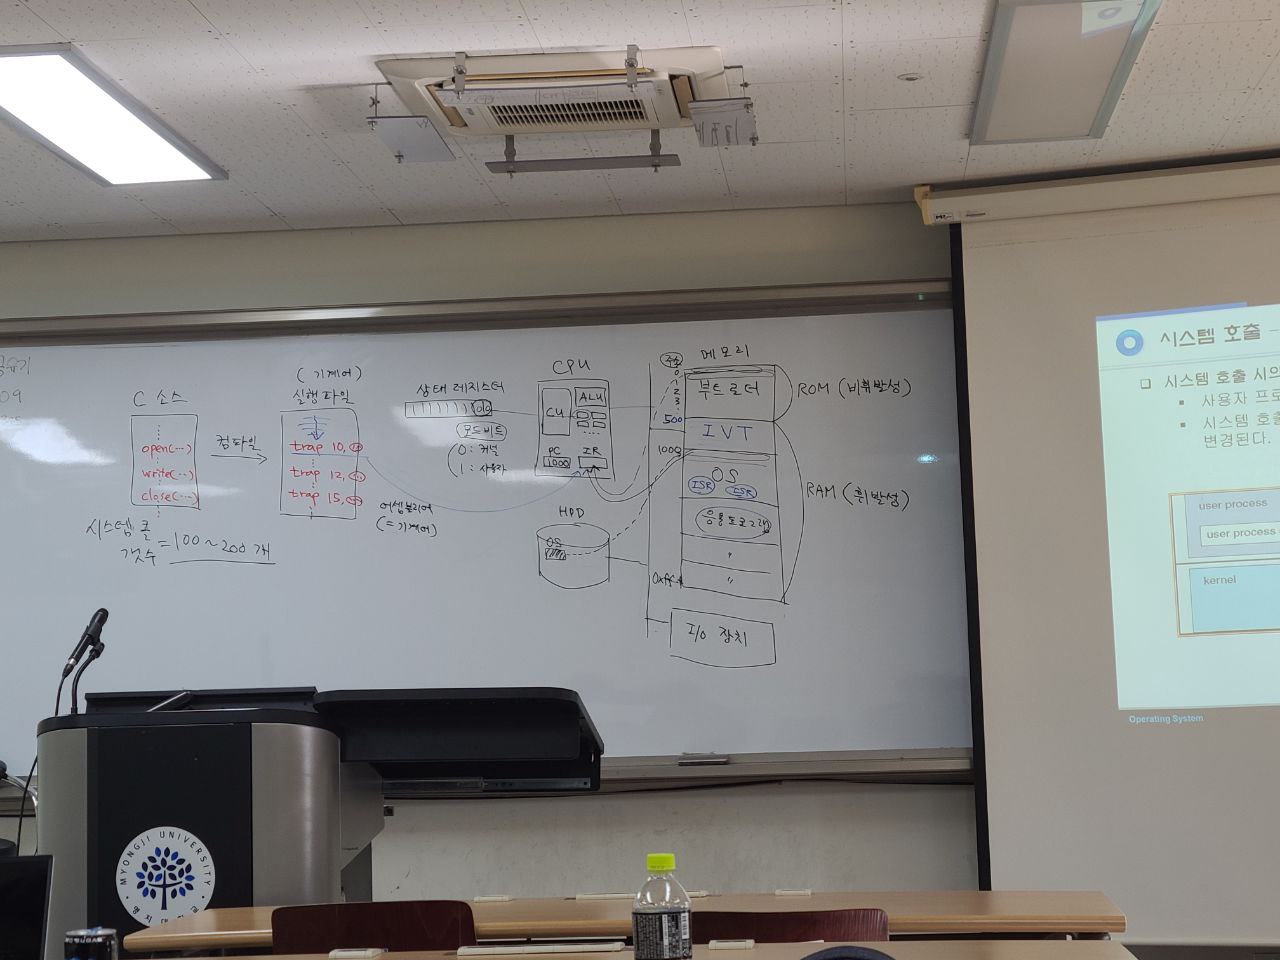 09
C 소스
open(…)
write(…)
close(…)
시스템 콜
갯수 = 100 ~ 200 개
컴파일
(기계어)
실행파일
trap 10,
trap 12,
trap 15,
어셈블리어
(= 기계어)
상태 레지스터
모드비트
0 : 커널
1 : 사용자
CPU
CU
ALU
PC
1000
IR
HDD
OS
주소
0
1
2
3
500
1000
메모리
부트로더
IVT
OS
ISR
ISR
응용프로그램
"
"
ROM (비휘발성)
RAM (휘발성)
I/o 장치
시스템 호출 –
시스템 호출 시의
사용자 프로
시스템 호출
변경된다.
user process
user process
kernel
Operating System
MYONGJI UNIVERSITY